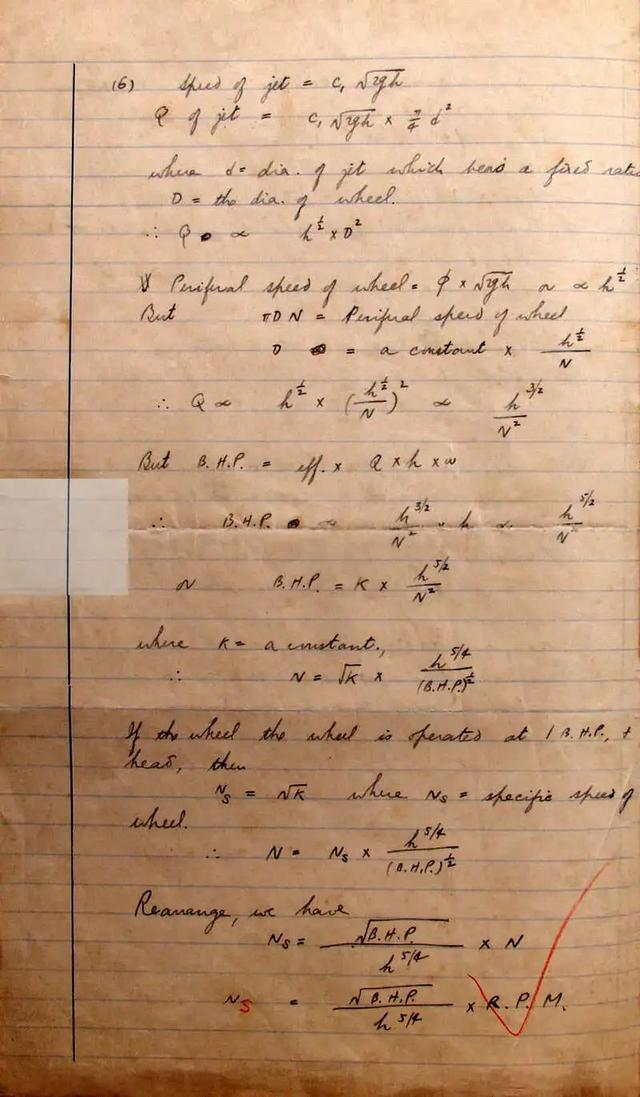 (6) Speed of jet = C₁ √2gh
Q of jet = C₁ √2gh × π/4 d²
where d = dia. of jet which bears a fixed ratio
D = the dia. of wheel.
∴ Q ∝ h^½ × D²
Periferal speed of wheel = φ × √2gh or ∝ h^½
But πDN = Periferal speed of wheel
D = a constant × h^½/N
∴ Q ∝ h^½ × (h^½/N)² ∝ h^3/2/N²
But B.H.P. = eff. × Q × h × w
∴ B.H.P. ∝ h^3/2/N² × h ∝ h^5/2/N²
or B.H.P. = K × h^5/2/N²
where K = a constant.,
∴ N = √K × h^5/4/(B.H.P.)^½
If the wheel the wheel is operated at 1 B.H.P., +
head, then
N_s = √K where N_s = specific speed of
wheel.
∴ N = N_s × h^5/4/(B.H.P.)^½
Rearrange, we have
N_s = √B.H.P./h^5/4 × N
N_S = √B.H.P./h^5/4 × R.P.M.